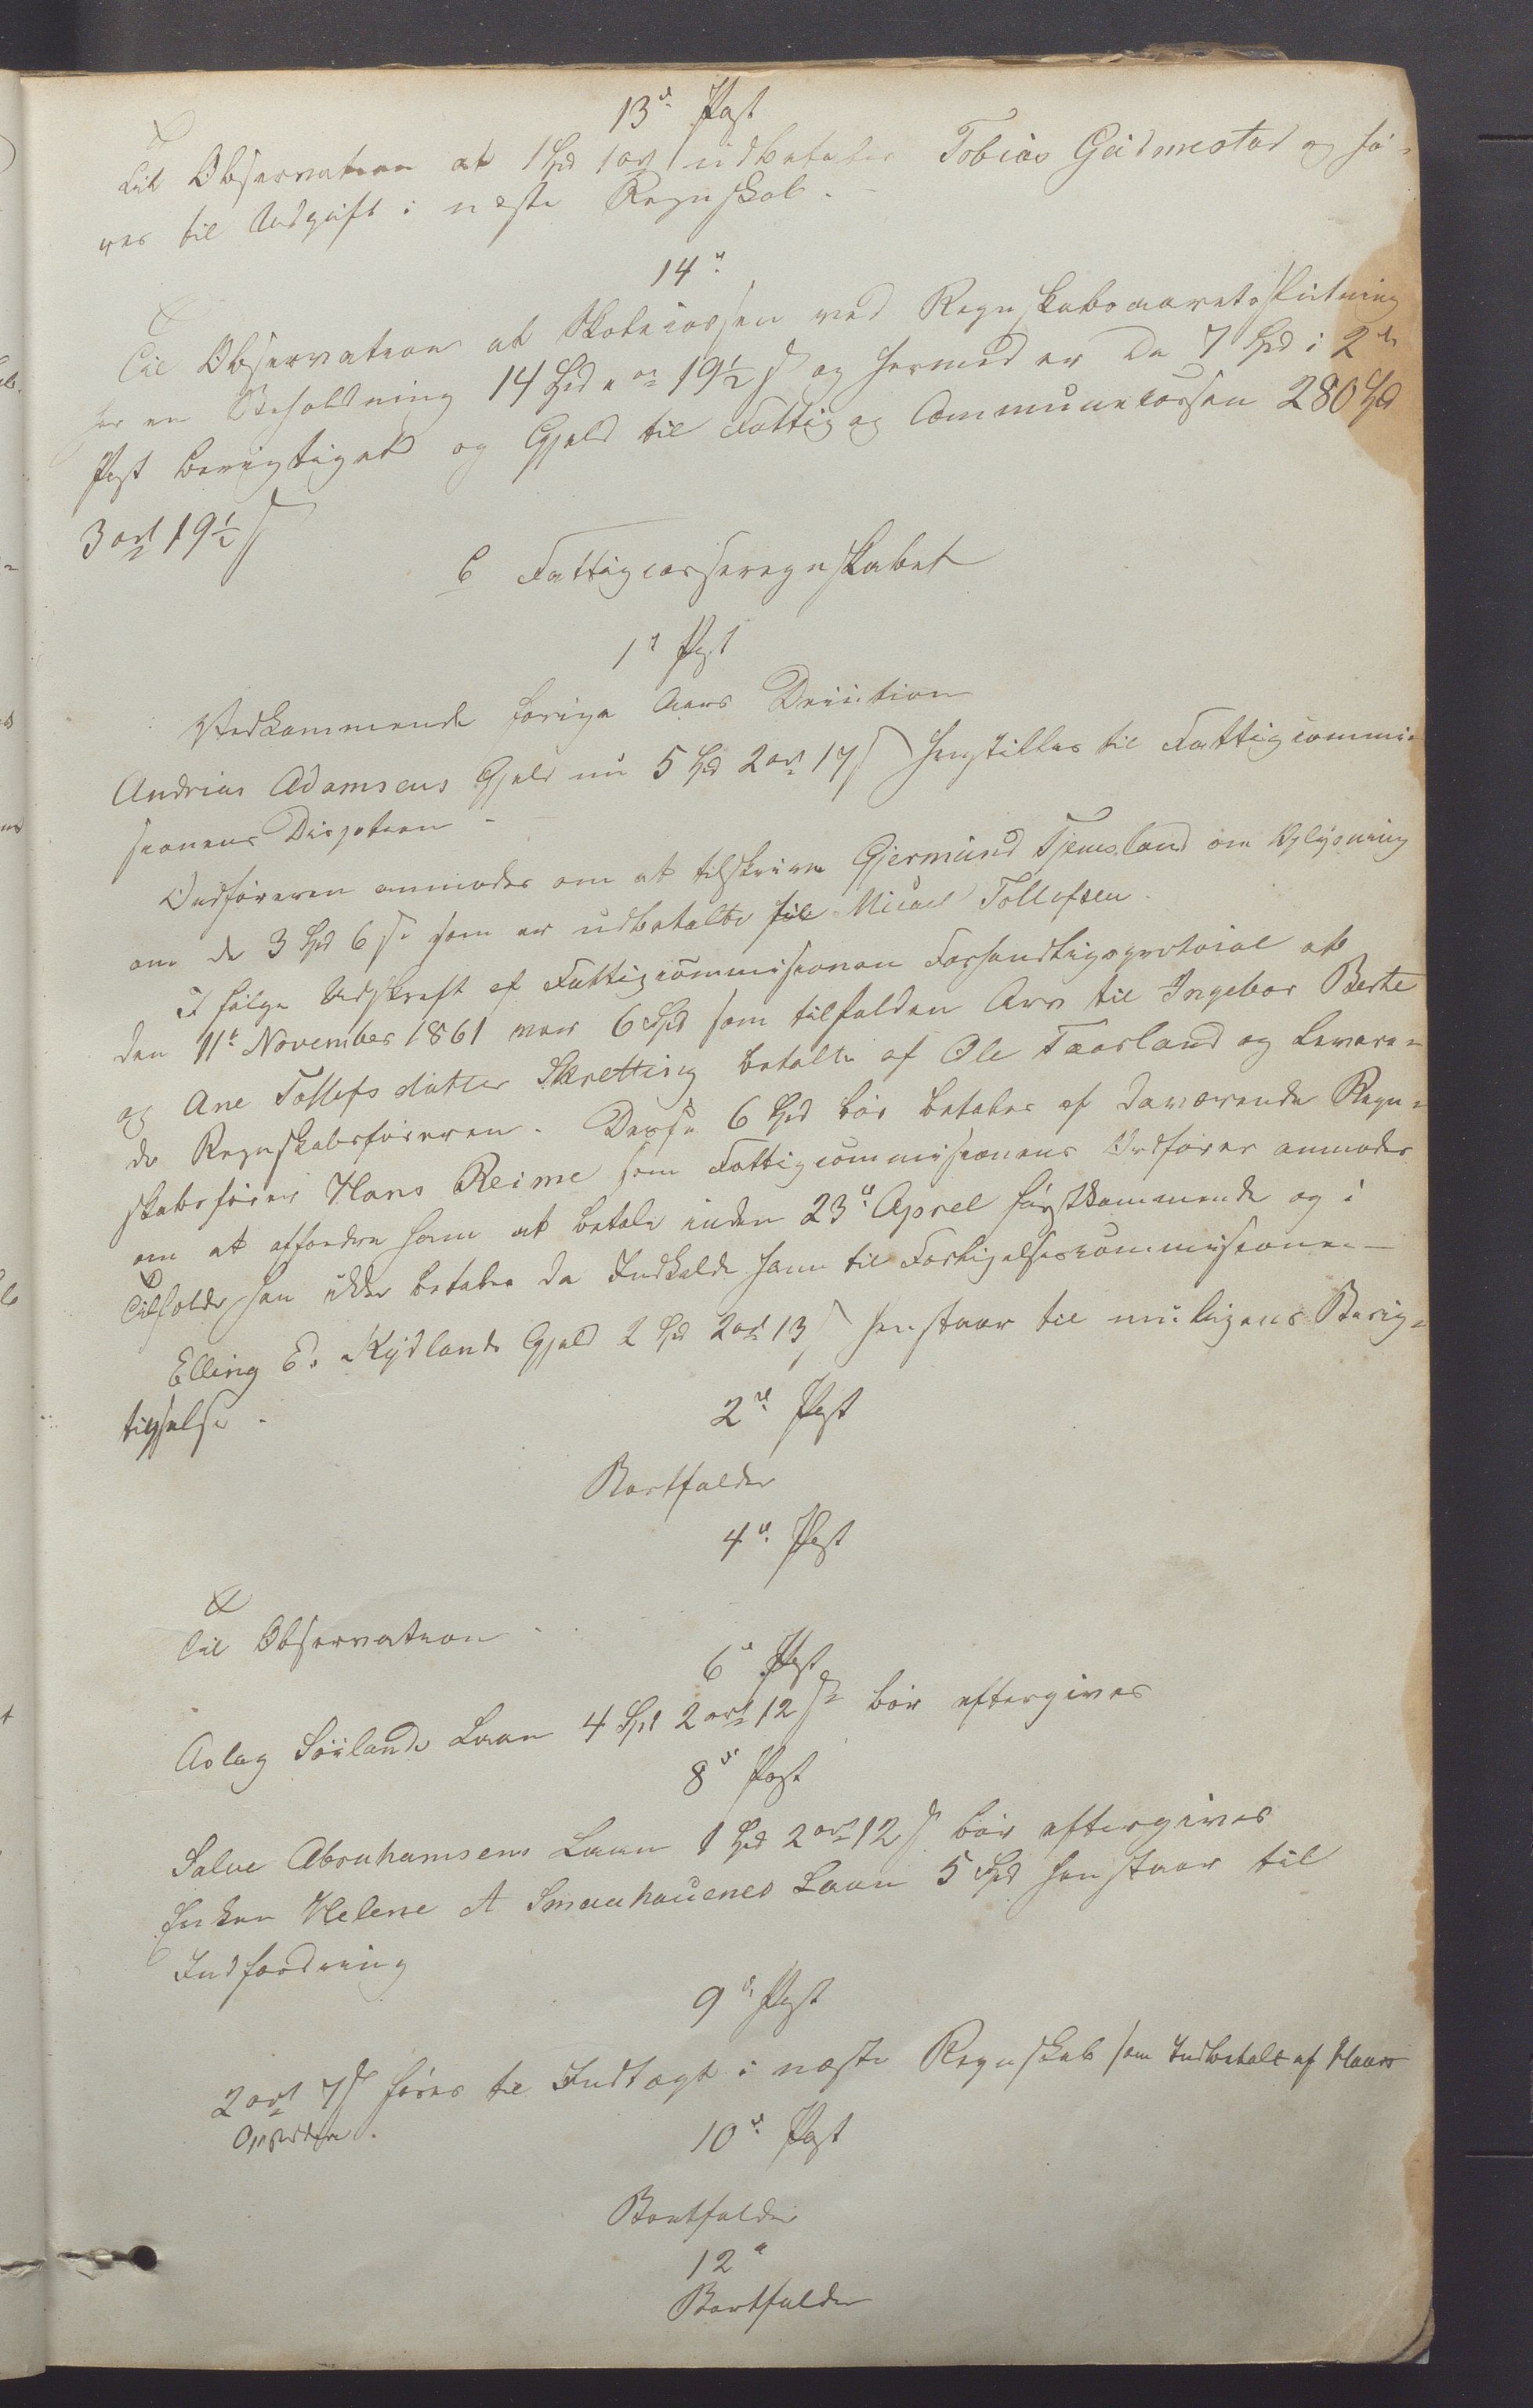 13de Post
Til Observation at 1 Spd 1 ort udbetales Tobias Gudmestad og fø-
res til Udgift i neste Regnskab.
14de
Til Observation at Skolecassen ved Regnskabsaarets slutning
har en Beholdning 14 Spd " ort 19½ s og hermed er de 7 Spd i 2den
Post berigtiget og Gjeld til Fattig og Communecassen 280 Spd
3 ort 19½ s
C Fattigcasseregnskabet
1ste Post
Vedkommende forige Aars Desition
Andrias Adamsens Gjeld nu 5 Spd 2 ort 17 s henstilles til Fattigcommi-
sionens Disposion -
Ordføreren anmodes om at tilskrive Gjermund Tjemsland om Oplysning
om de 3 Spd 6 s som er udbetalte til Micael Tollefsen.
I følge Udskreft af Fattigcommisionen Forhandligsprotocol af
den 11te November 1861 var 6 Spd som tilfalden Arv til Ingebor Berte
og Ane Tollefsdatter Skretting betalte af Ole Taarland og Levere-
de Regnskabsføreren. Desse 6 Spd bør betales af daværende Regn-
skabsfører Hans Reime som Fattigcommisionens Ordfører anmodes
om at affordre ham at betale inden 23de Aprel førstkommende og i
Tilfælde han ikke betaler da Indkalde ham til Forligelsescommisionen -
Elling E. Kydlands Gjeld 2 Spd 2 ort 13 s henstaar til muligens Berig-
tigelse.
2den Post
Bortfalder
4de Post
Til Observation.
6te Post
Aslag Søilands Laan 4 Spd 2 ort 12 s bør eftergives
8de Post
Salve Abrahamsens Laan 1 Spd 2 ort 12 s bør eftergives
Enken Helene A Smaahauenes Laan 5 Spd henstaar til
Indfordring
9de Post
2 ort 7 s føres til Indtægt i næste Regnskab som Indbetalt af Haars
10de Post
Bortfalder
12te
Bortfalder